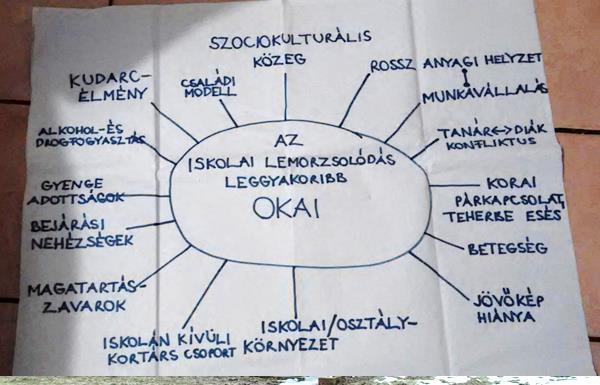 AZ
ISKOLAI LEMORZSOLÓDÁS
LEGGYAKORIBB
OKAI
SZOCIOKULTURÁLIS
KÖZEG
ROSSZ ANYAGI HELYZET
MUNKAVÁLLALÁS
TANÁR↔DIÁK
KONFLIKTUS
KORAI
PÁRKAPCSOLAT,
TEHERBE ESÉS
BETEGSÉG
JÖVŐKÉP
HIÁNYA
ISKOLAI/OSZTÁLY-
KÖRNYEZET
ISKOLÁN KÍVÜLI
KORTÁRS CSOPORT
MAGATARTÁS-
ZAVAROK
BEJÁRÁSI
NEHÉZSÉGEK
GYENGE
ADOTTSÁGOK
ALKOHOL-ÉS
DROGFOGYASZTÁS
KUDARC-
ÉLMÉNY
CSALÁDI
MODELL